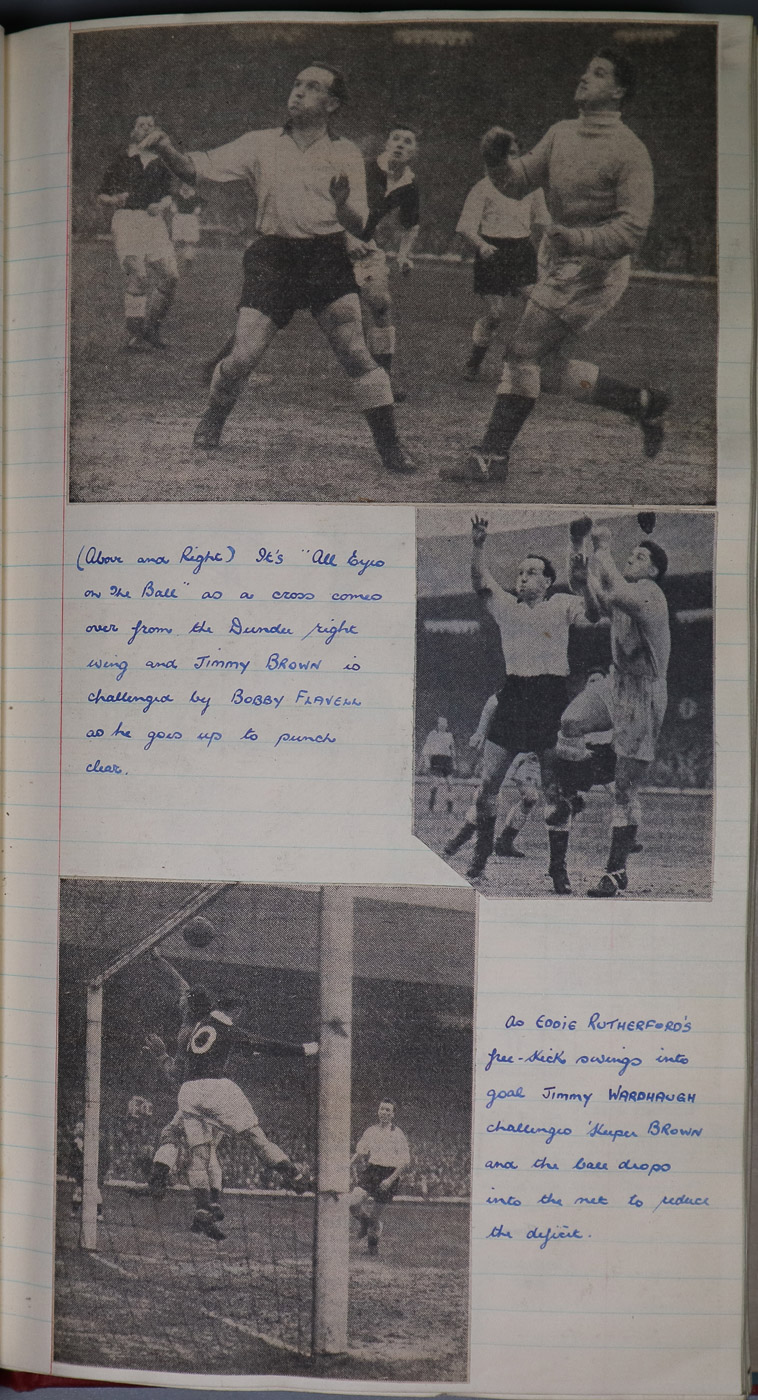 (Above and Right) It's "All Eyes
on The Ball" as a cross comes
over from the Dundee right
wing and JIMMY BROWN is
challenged by BOBBY FLAVELL
as he goes up to punch
clear.
10
As EDDIE RUTHERFORD'S
free-kick swings into
goal JIMMY WARDHAUGH
challenges 'Keeper BROWN
and the ball drops
into the net to reduce
the deficit.